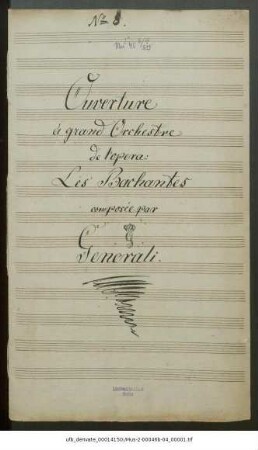 No 8.
Ouverture
à grand Orchestre
de l'opera:
Les Bachantes
composée par
Generali.
ufb_derivate_00014150/Mus-2-00046b-04_00001.tif